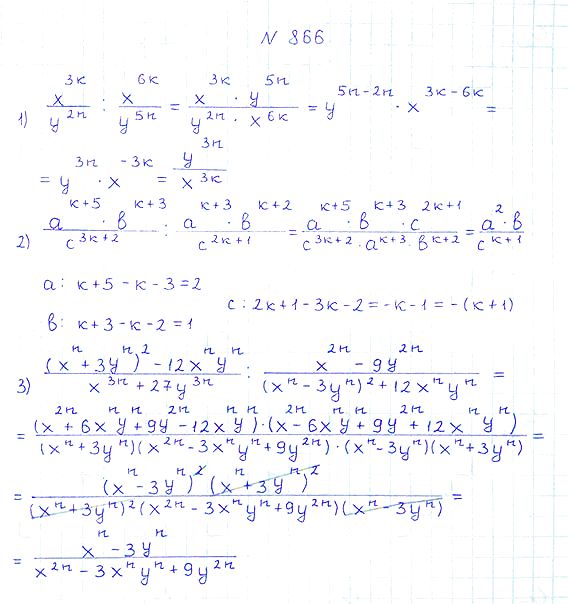 N 866
1) x^{3к}/y^{2n} : x^{6к}/y^{5n} = (x^{3к} · y^{5n})/(y^{2n} · x^{6к}) = y^{5n-2n} · x^{3к-6к} =
= y^{3n} · x^{-3к} = y^{3n}/x^{3к}
2) (a^{к+5} · b^{к+3})/c^{3к+2} : (a^{к+3} · b^{к+2})/c^{2к+1} = (a^{к+5} · b^{к+3} · c^{2к+1})/(c^{3к+2} · a^{к+3} · b^{к+2}) = (a^2 · b)/c^{к+1}
a: к+5-к-3=2
c: 2к+1-3к-2=-к-1=-(к+1)
b: к+3-к-2=1
3) ((x^n+3y^n)^2-12x^n y^n)/(x^{3n}+27y^{3n}) : (x^{2n}-9y^{2n})/((x^n-3y^n)^2+12x^n y^n) =
= ((x^{2n}+6x^n y^n+9y^{2n}-12x^n y^n)·(x^{2n}-6x^n y^n+9y^{2n}+12x^n y^n))/((x^n+3y^n)(x^{2n}-3x^n y^n+9y^{2n})·(x^n-3y^n)(x^n+3y^n)) =
= ((x^n-3y^n)^2 (x^n+3y^n)^2)/((x^n+3y^n)^2(x^{2n}-3x^n y^n+9y^{2n})(x^n-3y^n)) =
= (x^n-3y^n)/(x^{2n}-3x^n y^n+9y^{2n})